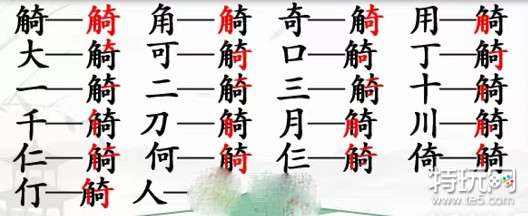 觭—觭 角—觭 奇—觭 用—觭
大—觭 可—觭 口—觭 丁—觭
一—觭 二—觭 三—觭 十—觭
千—觭 刀—觭 月—觭 川—觭
仁—觭 何—觭 仨—觭 倚—觭
仃—觭 人—
特玩网